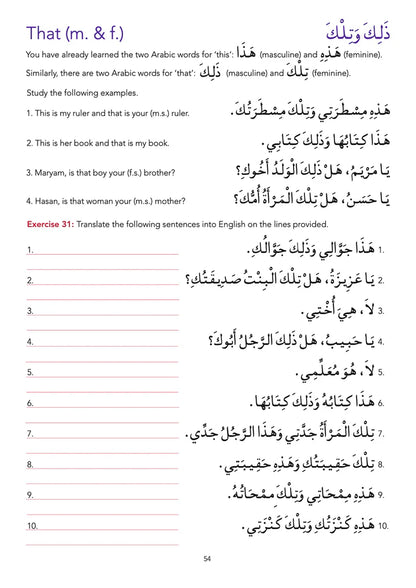 That (m. & f.) ذَلِكَ وَتِلْكَ
You have already learned the two Arabic words for 'this': هَـٰذَا (masculine) and هَـٰذِهِ (feminine).
Similarly, there are two Arabic words for 'that': ذَٰلِكَ (masculine) and تِلْكَ (feminine).
Study the following examples.
1. This is my ruler and that is your (m.s.) ruler. هَذِهِ مِسْطَرَتِي وَتِلْكَ مِسْطَرَتُكَ.
2. This is her book and that is my book. هَذَا كِتَابُهَا وَذَلِكَ كِتَابِي.
3. Maryam, is that boy your (f.s.) brother? يَا مَرْيَمُ، هَلْ ذَلِكَ الْوَلَدُ أَخُوكِ؟
4. Hasan, is that woman your (m.s.) mother? يَا حَسَنُ، هَلْ تِلْكَ الْمَرْأَةُ أُمُّكَ؟
Exercise 31: Translate the following sentences into English on the lines provided.
1. 1. هَذَا جَوَّالِي وَذَلِكَ جَوَّالُكِ.
2. 2. يَا عَزِيزَةُ، هَلْ تِلْكَ الْبِنْتُ صَدِيقَتُكِ؟
3. 3. لاَ، هِيَ أُخْتِي.
4. 4. يَا حَبِيبُ، هَلْ ذَلِكَ الرَّجُلُ أَبُوكَ؟
5. 5. لاَ، هُوَ مُعَلِّمِي.
6. 6. هَذَا كِتَابُهُ وَذَلِكَ كِتَابُهَا.
7. 7. تِلْكَ الْمَرْأَةُ جَدَّتِي وَهَذَا الرَّجُلُ جَدِّي.
8. 8. تِلْكَ حَقِيبَتُكِ وَهَذِهِ حَقِيبَتِي.
9. 9. هَذِهِ مِمْحَاتِي وَتِلْكَ مِمْحَاتُهُ.
10. 10. هَذِهِ كَنْزَتُكِ وَتِلْكَ كَنْزَتِي.
54